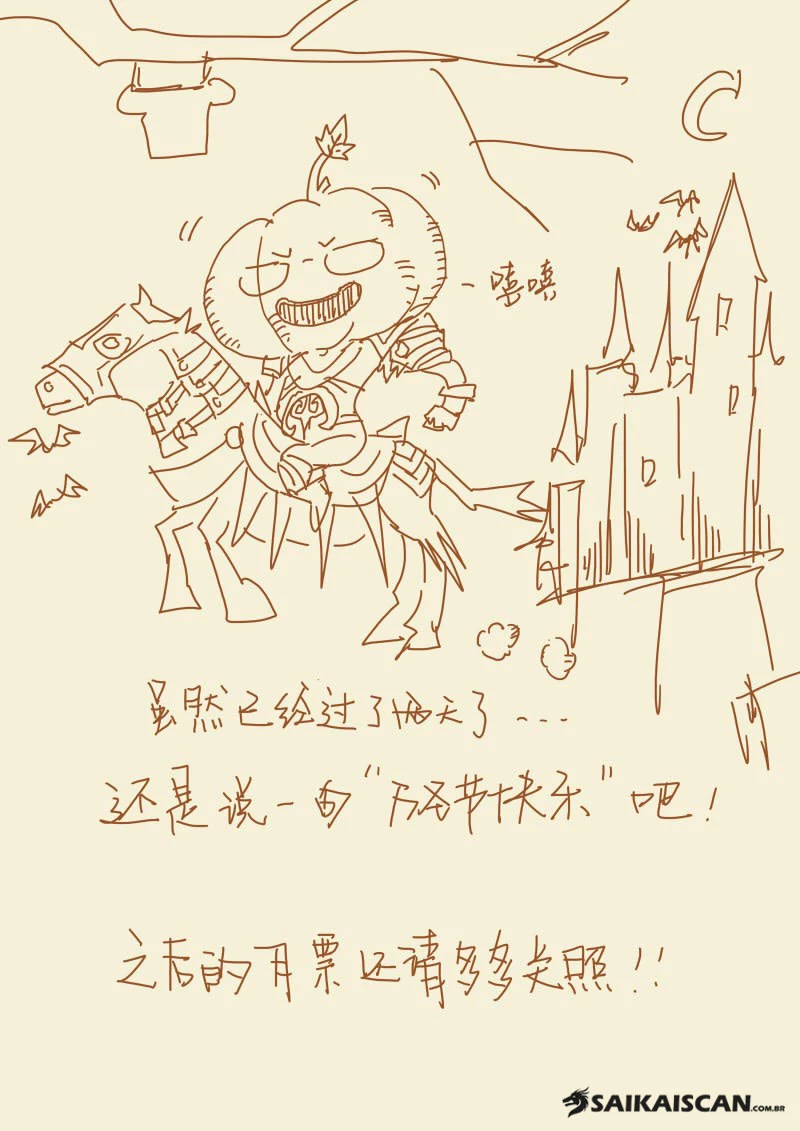 嘻嘻
虽然已经过了两天了...
还是说一句“万圣节快乐”吧！
之后的月票还请多多关照！！
SAIKAISCAN.COM.BR